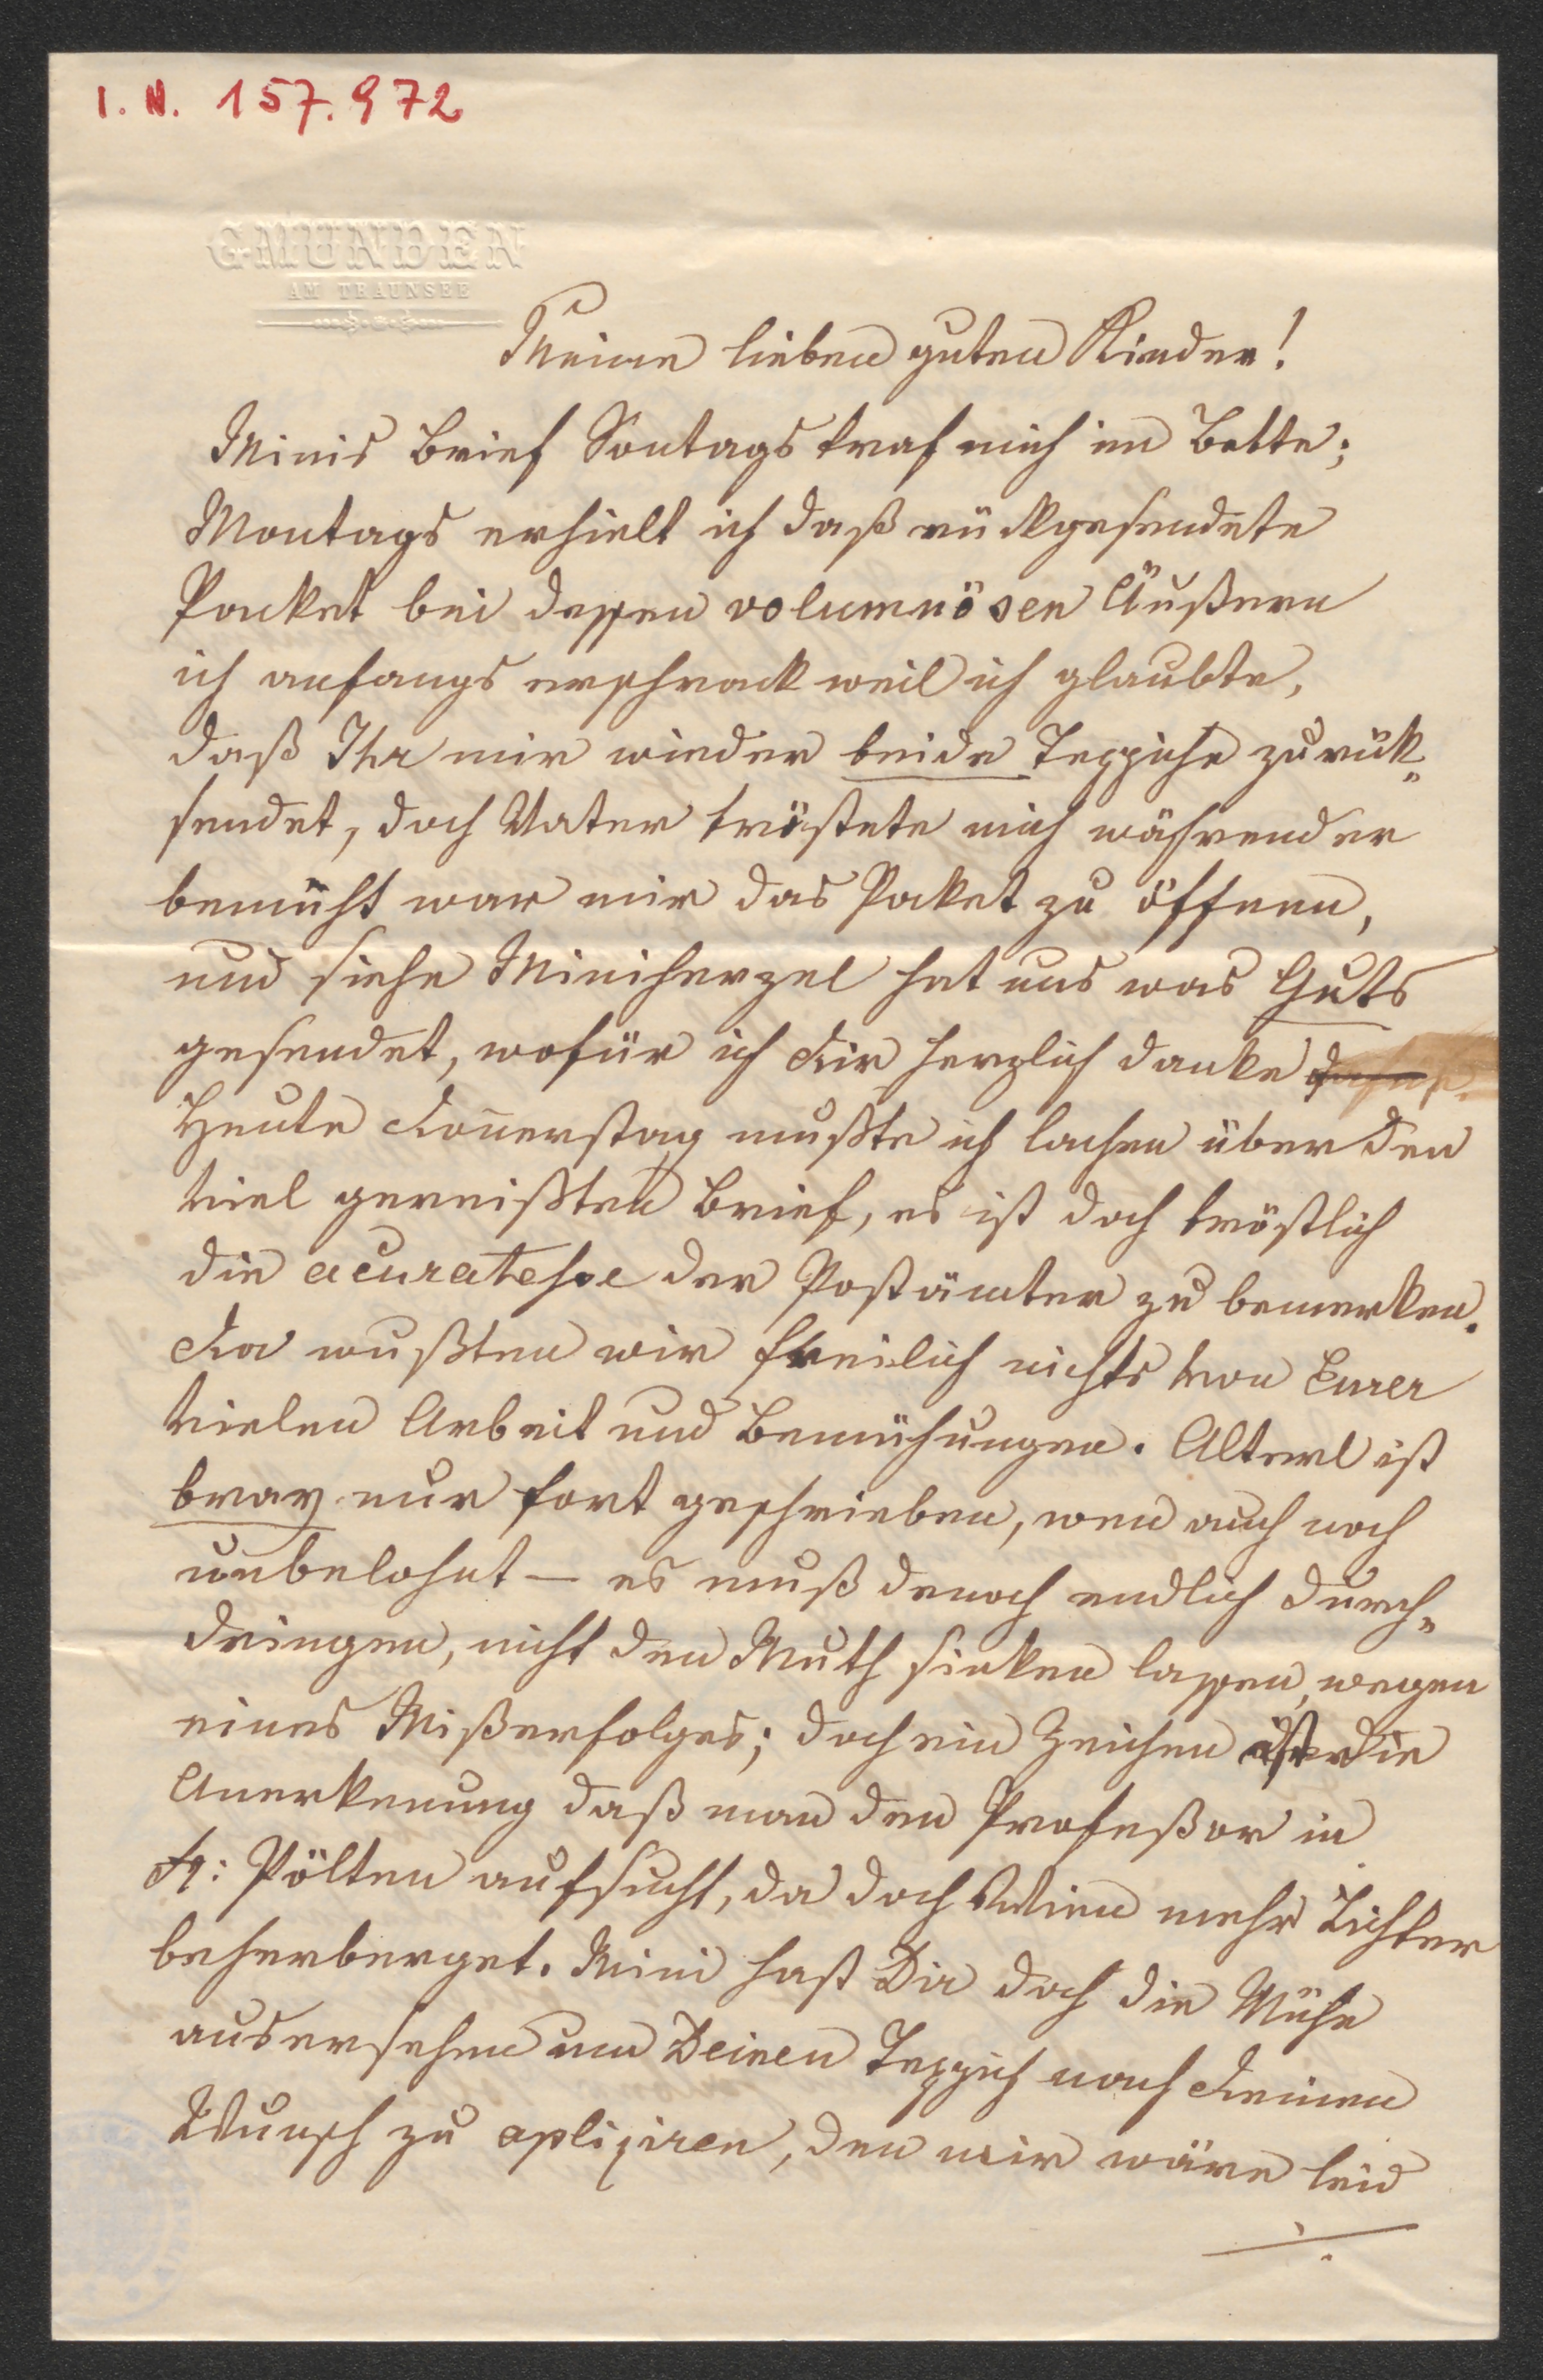 I. N. 157.972
GMUNDEN
AM TRAUNSEE
Meine lieben guten Kinder!
Minis Brief Sontags traf mich im Bette;
Montags erhielt ich daß rückgesendete
Packet bei dessen volumnösen Äußern
ich anfangs erschrack weil ich glaubte,
daß Ihr mir wieder beide Teppiche zurük„
sendet, doch Vater tröstete mich während er
bemüht war mir das Paket zu öffnen,
und siehe Miniherzel hat uns was Guts
gesendet, wofür ich Dir herzlich danke
Heute Donerstag mußte ich lachen über den
viel gereißten Brief, es ist doch tröstlich
die acuratesse der Postämter zu bemerken.
Da wußten wir freilich nichts von Eurer
vielen Arbeit und Bemühungen. Alterl ist
brav nur fort geschrieben, wen auch noch
unbelohnt — es muß denoch endlich durch„
dringen, nicht den Muth sinken lassen, wegen
eines Mißerfolges; doch ein Zeichen ist die
Anerkenung daß man den Profeßor in
St: Pölten aufsucht, da doch Wien mehr Lichter
beherberget. Mini hast Dir doch die Mühe
ausersehen um Deinen Teppich nach Deinen
Wunsch zu apliziren, den mir wäre leid
./.